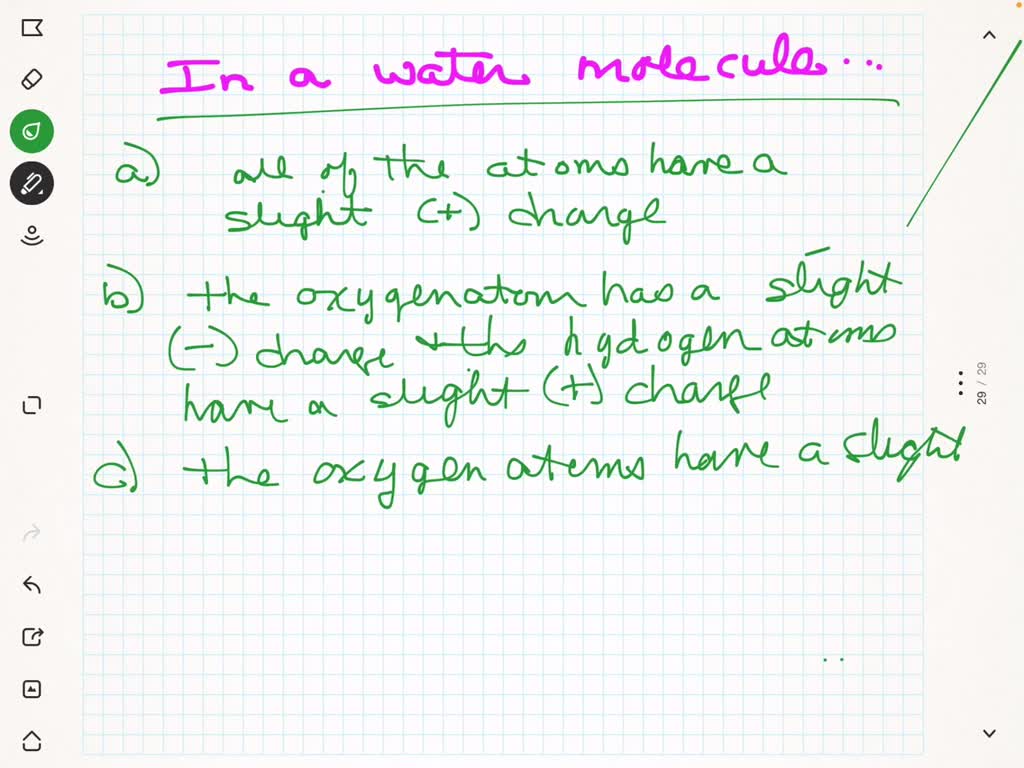 In a water molecule...
a) all of the atoms have a
slight (+) charge
b) the oxygen atom has a slight
(-) charge + ths hydogen atoms
have a slight (+) charge
c) the oxygen atems have a slight
29 / 29